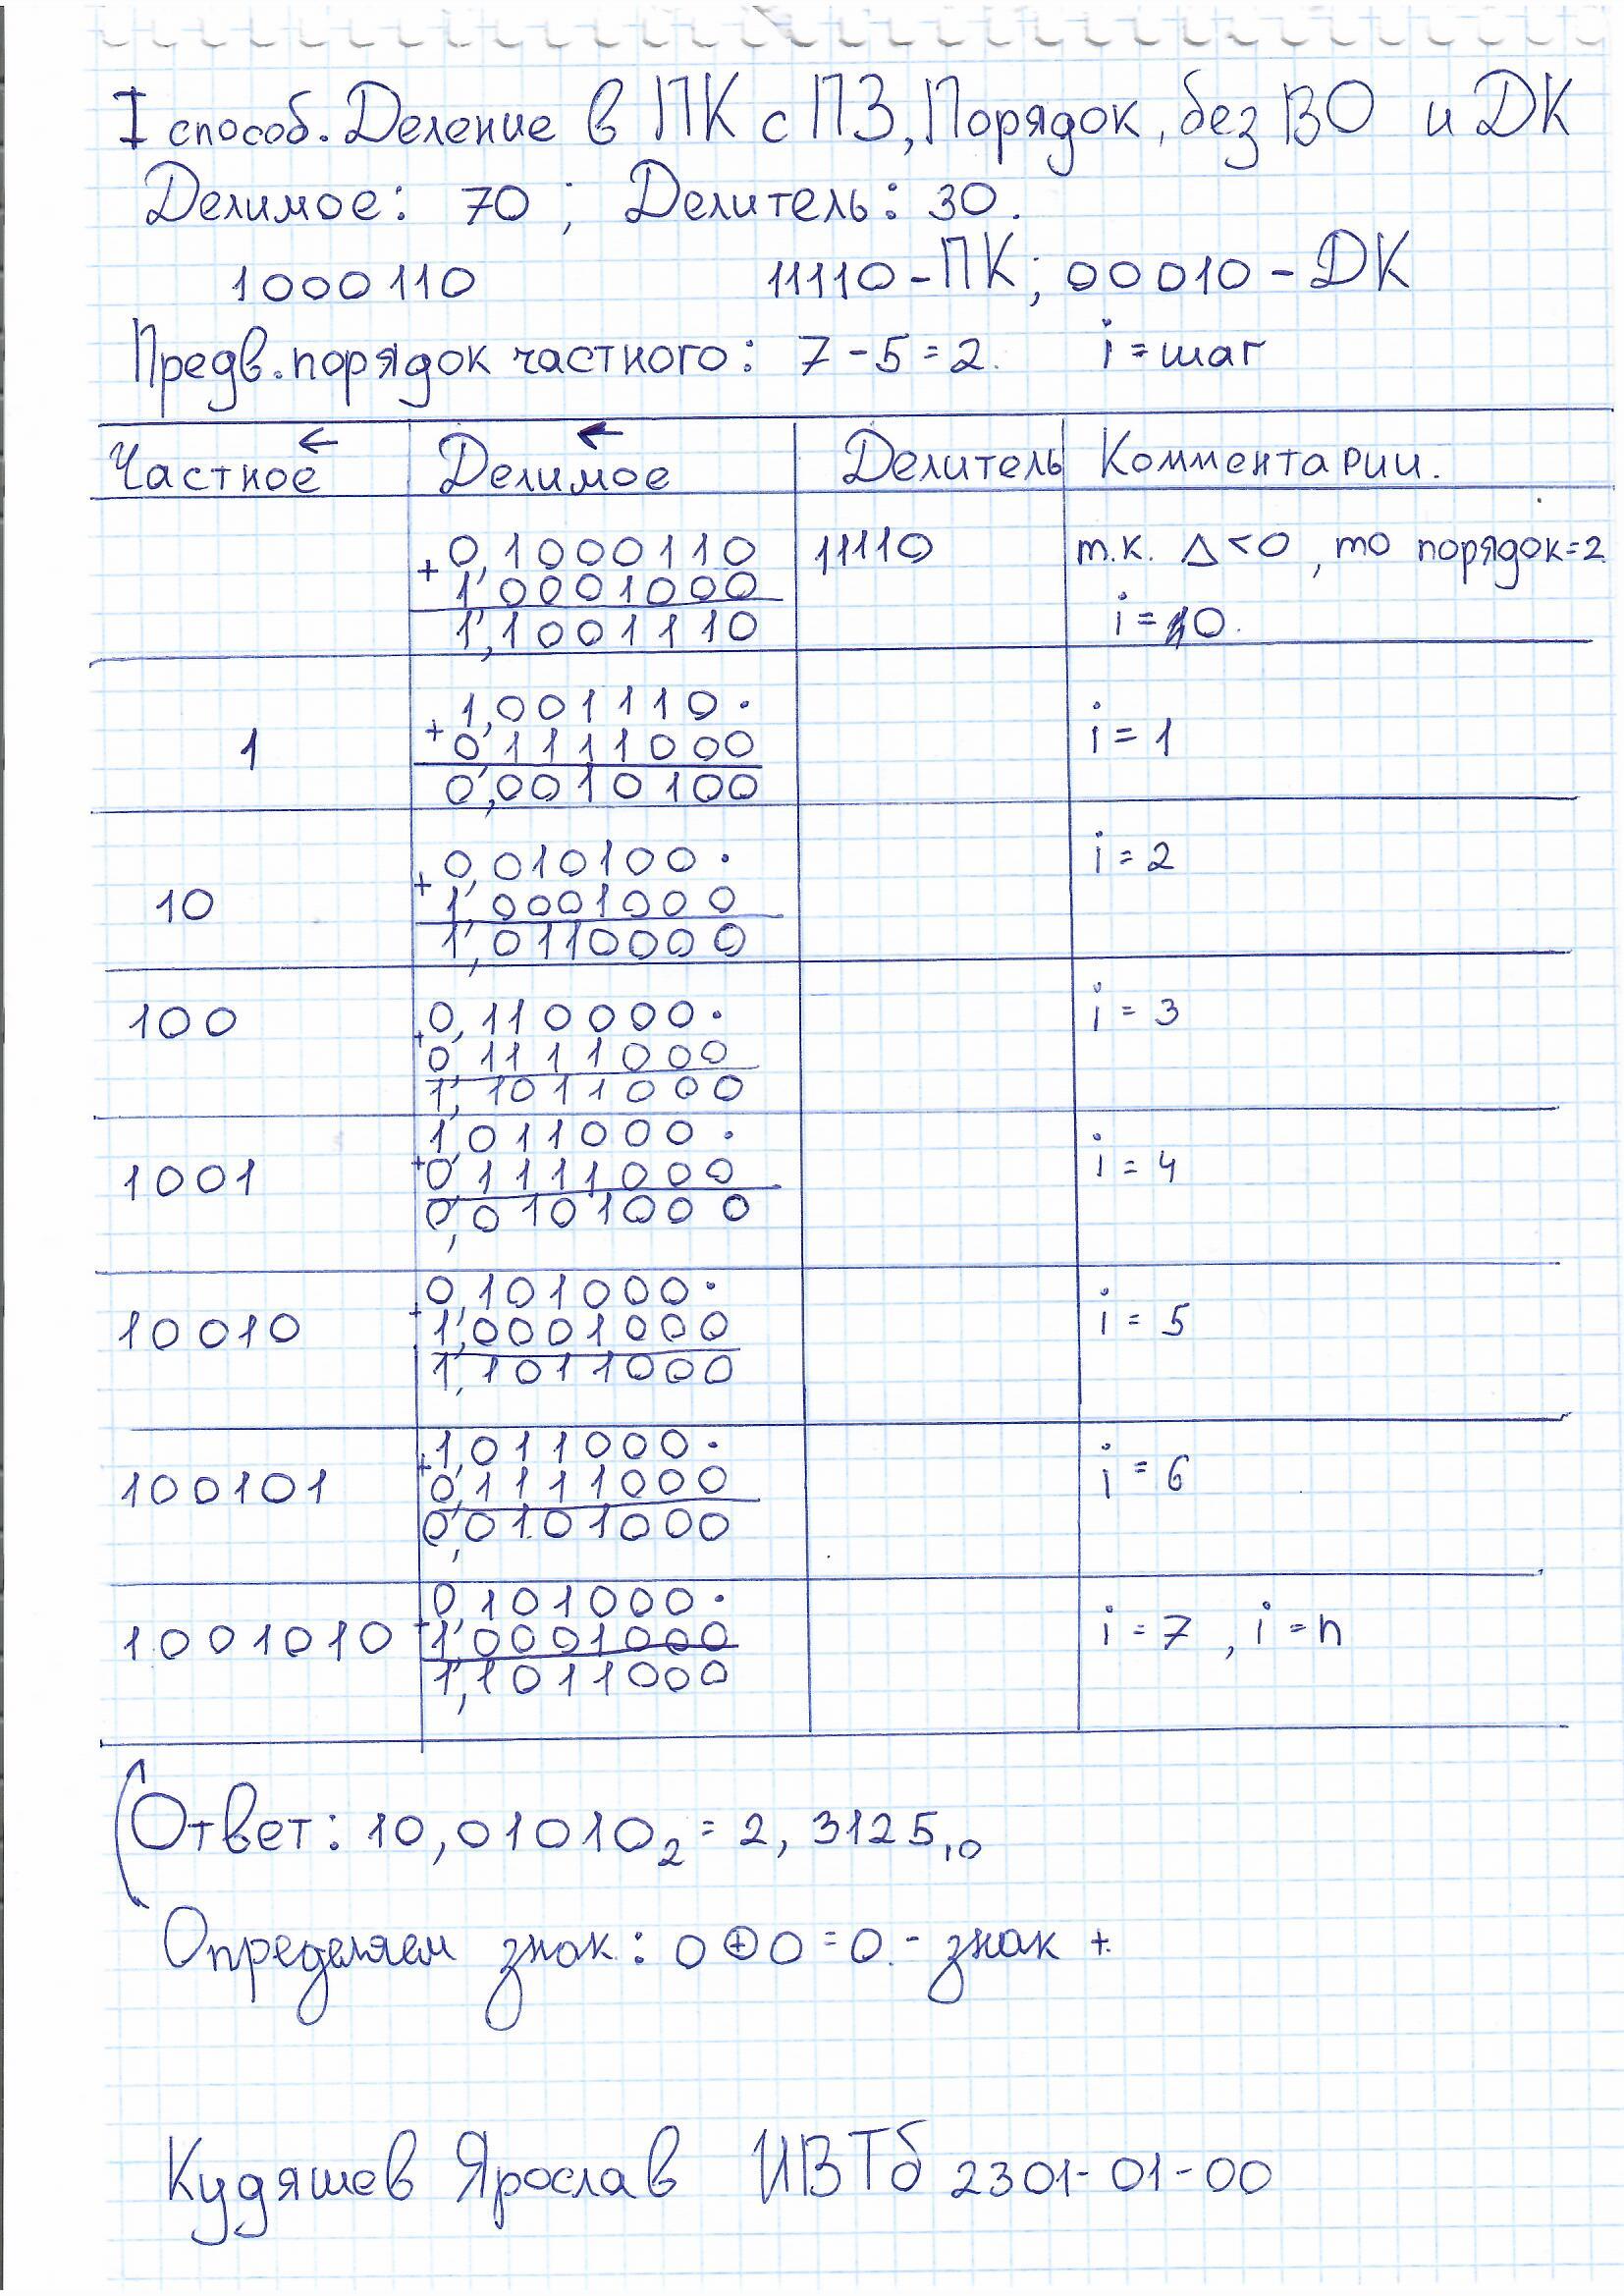 I способ. Деление в ПК с ПЗ, Порядок, без ВО и ДК
Делимое: 70 ; Делитель: 30.
1000110 11110-ПК; 00010-ДК
Предв. порядок частного: 7-5=2. i=шаг
Частное ← Делимое ← Делитель Комментарии.
+0,1000110 11110 т.к. Δ<0, то порядок=2
1,0001000
1,1001110 i=0.
1,001110·
1 +0,1111000 i=1
0,0010100
0,010100· i=2
10 +1,0001000
1,0110000
100 0,110000· i=3
+0,1111000
1,1011000
1,011000· i=4
1001 +0,1111000
0,0101000
0,101000· i=5
10010 +1,0001000
1,1011000
1,011000· i=6
100101 +0,1111000
0,0101000
0,101000·
1001010 +1,0001000 i=7, i=n
1,1011000
Ответ: 10,01010₂=2,3125₁₀
Определяем знак: 0⊕0=0.- знак +.
Кудяшев Ярослав ИВТб 2301-01-00